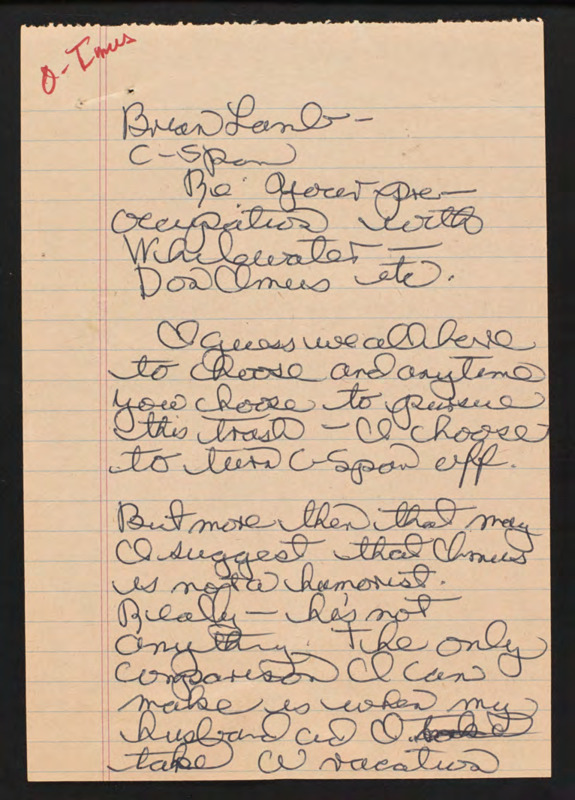 O-Imus
Brian Lamb –
C-Span
Re: your pre-
occupation with
Whitewater –
Don Imus etc.
I guess we all have
to choose and anytime
you choose to pursue
this trash – I choose
to turn C-Span off.
But more then that may
I suggest that Imus
is not a humorist.
Really – he's not
anything. The only
comparison I can
make is when my
husband and I
take a vacation